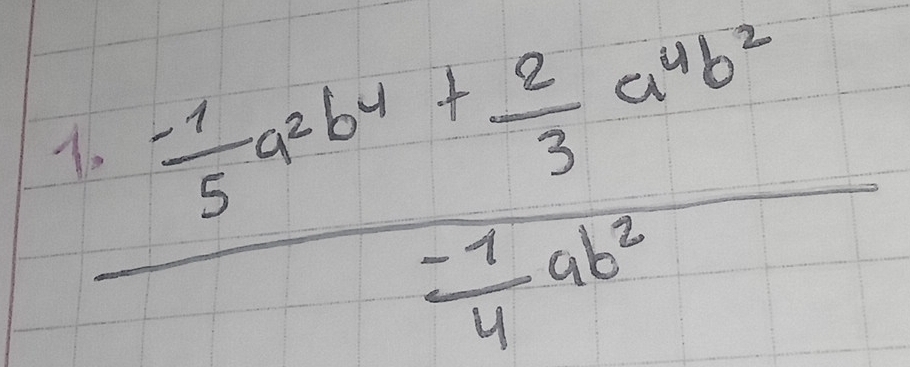 1. -1/5 a²b⁴ + 2/3 a⁴b²
-1/4 ab²